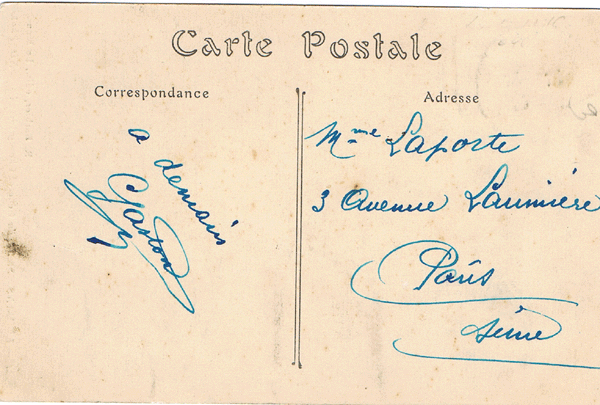 Carte Postale
Correspondance
Adresse
a demain
Gaston
Mme Laporte
3 Avenue Laumière
Paris
Seine